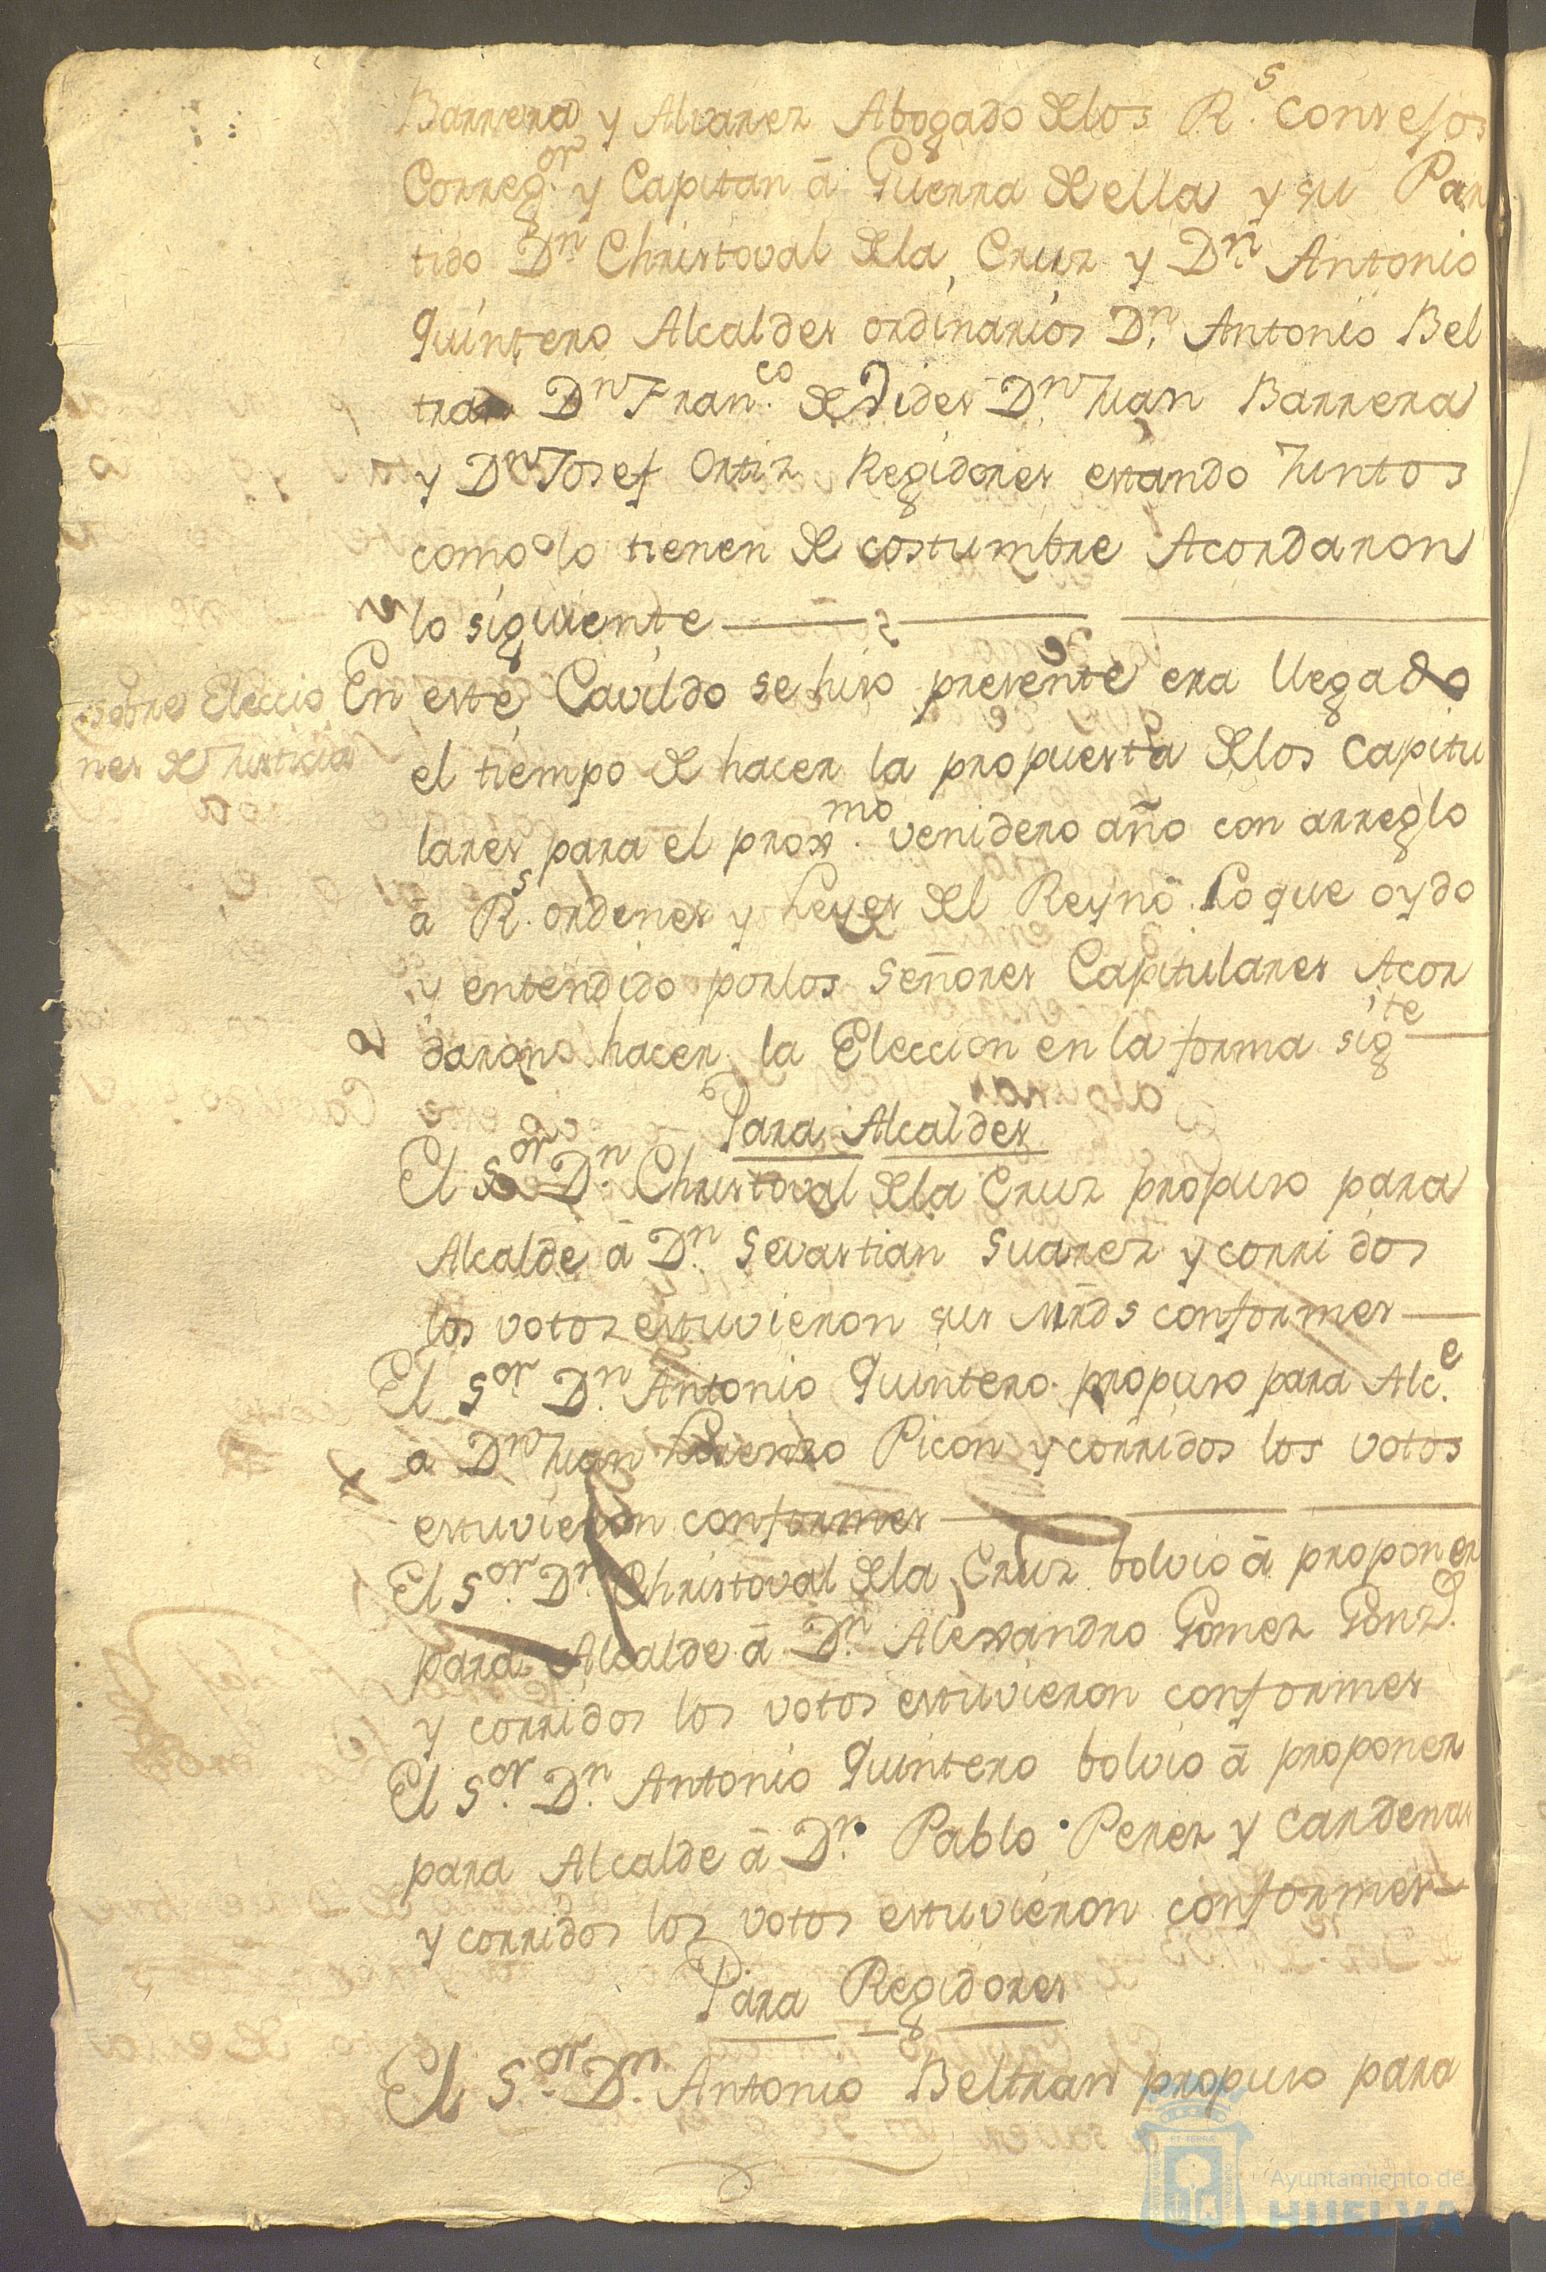 Barrera y Alvarez Abogado de los R.s Consejos
Correg.or y Capitan â Guerra de ella y su Par
tido D.n Christoval de la Cruz y D.n Antonio
Quintero Alcaldes ordinarios D.n Antonio Bel
tran D.n Fran.co de Dides D.n Juan Barrera
y D.n Josef Ortiz Regidores estando Juntos
como lo tienen de costumbre Acordaron
lo siguiente
sobre Eleccio
nes de Justicia
En este Cavildo se hiso presente era llegado
el tiempo de hacer la propuesta de los Capitu
lares para el prox.mo venidero año con arreglo
â R.s ordenes y Leyes del Reyno. Lo que oydo
y entendido por los Señores Capitulares Acor
daron hacer la Eleccion en la forma sig.te
Para Alcaldes
El S.or D.n Christoval de la Cruz propuso para
Alcalde â D.n Sevastian Suarez y corridos
los votos estuvieron sus Mrds conformes
El S.or D.n Antonio Quintero propuso para Alc.e
a D.n Juan Lorenzo Picon y corridos los votos
estuvieron conformes
El S.or D.n Christoval de la Cruz bolvio â proponer
para Alcalde â D.n Alexandro Gomez Gonz.
y corridos los votos estuvieron conformes
El S.or D.n Antonio Quintero bolvio â proponer
para Alcalde â D.n Pablo Perez y Cardenas
y corridos los votos estuvieron conformes
Para Regidores
El S.or D.n Antonio Beltran propuso para
Ayuntamiento de
HUELVA